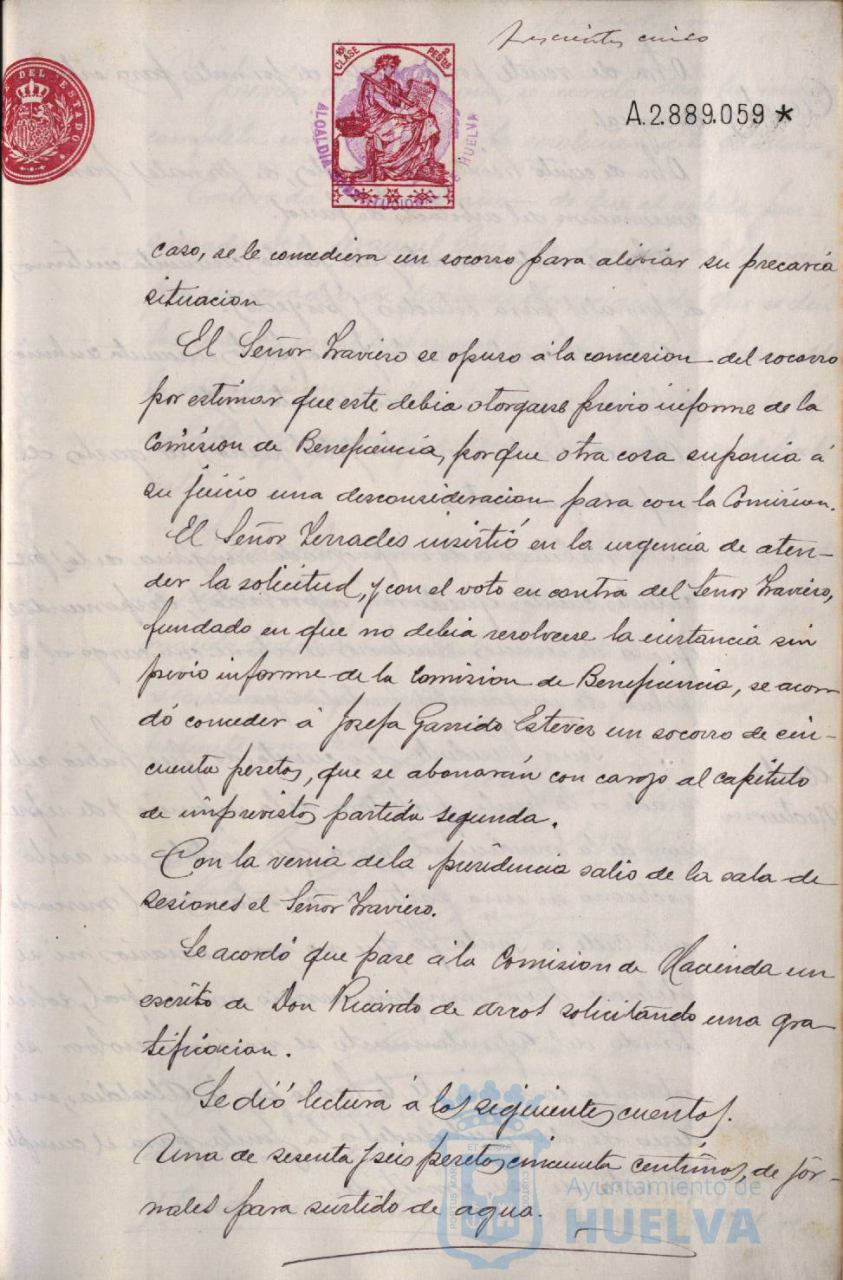 Trescientos cinco
DEL ESTADO
10ª CLASE
2 PESETAS
ALCALDIA CONSTITUCIONAL DE HUELVA
A.2.889.059 *
caso, se le concediera un socorro para aliviar su precaria
situacion
El Señor Traviero se opuso á la concesion del socorro
por estimar que este debia otorgarse previo informe de la
Comision de Beneficencia, porque otra cosa suponia á
su juicio una desconsideracion para con la Comision.
El Señor Terrades insistió en la urgencia de aten-
der la solicitud, y con el voto en contra del Señor Traviero,
fundado en que no debia resolverse la instancia sin
previo informe de la Comision de Beneficencia, se acor
dó conceder á Josefa Garrido Estevez un socorro de cin-
cuenta pesetas, que se abonarán con cargo al capitulo
de imprevistos partida segunda.
Con la venia de la presidencia salio de la sala de
sesiones el Señor Traviero.
Se acordó que pase á la Comision de Hacienda un
escrito de Don Ricardo de Arcos solicitando una gra-
tificacion.
Se dió lectura á las siguientes cuentas.
Una de sesenta y seis pesetas cincuenta centimos, de jor-
nales para surtido de agua.
Ayuntamiento de
HUELVA